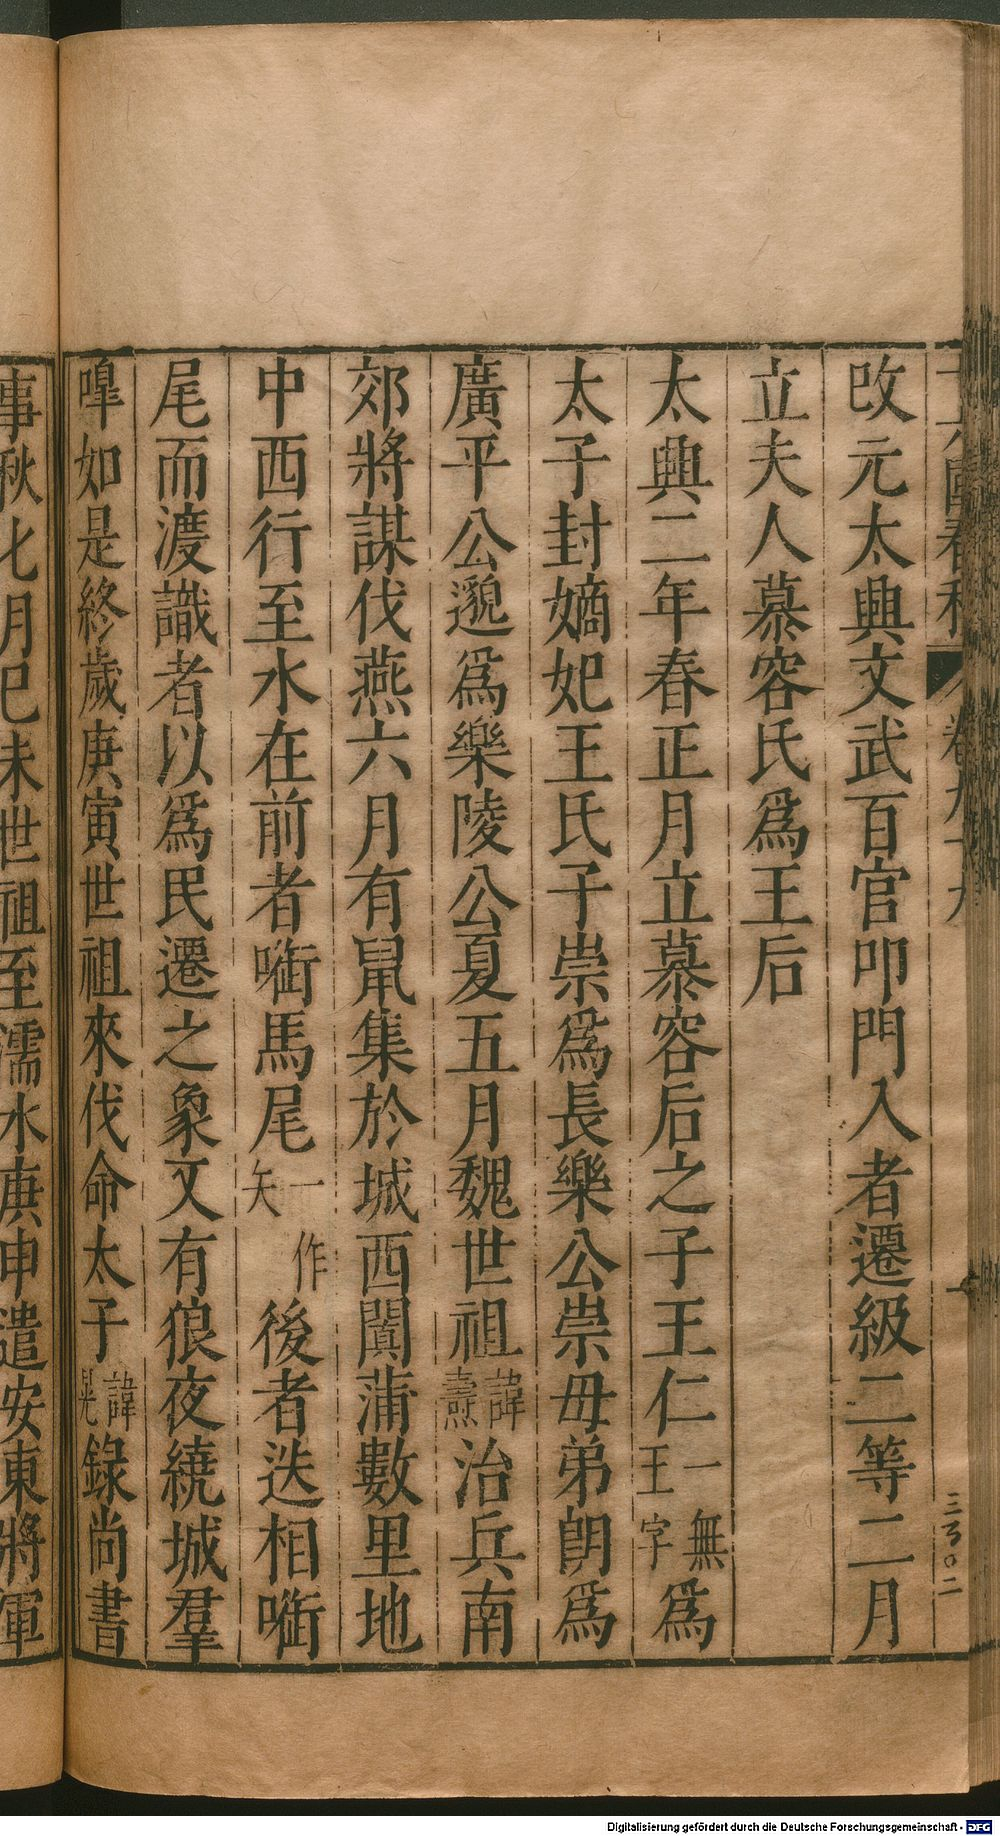 十六國春秋 卷九十九
三〇二
改元太興文武百官叩門入者遷級二等二月
立夫人慕容氏爲王后
太興二年春正月立慕容后之子王仁一無王字爲
太子封嫡妃王氏子崇爲長樂公崇毋弟朗爲
廣平公邈爲樂陵公夏五月魏世祖諱燾治兵南
郊將謀伐燕六月有鼠集於城西闐蒲數里地
中西行至水在前者㗸馬尾一作矢後者迭相㗸
尾而渡識者以爲民遷之象又有狼夜繞城羣
嘷如是終歲庚寅世祖來伐命太子諱晃錄尚書
事秋七月巳未世祖至濡水庚申遣安東將軍
Digitalisierung gefördert durch die Deutsche Forschungsgemeinschaft - DFG